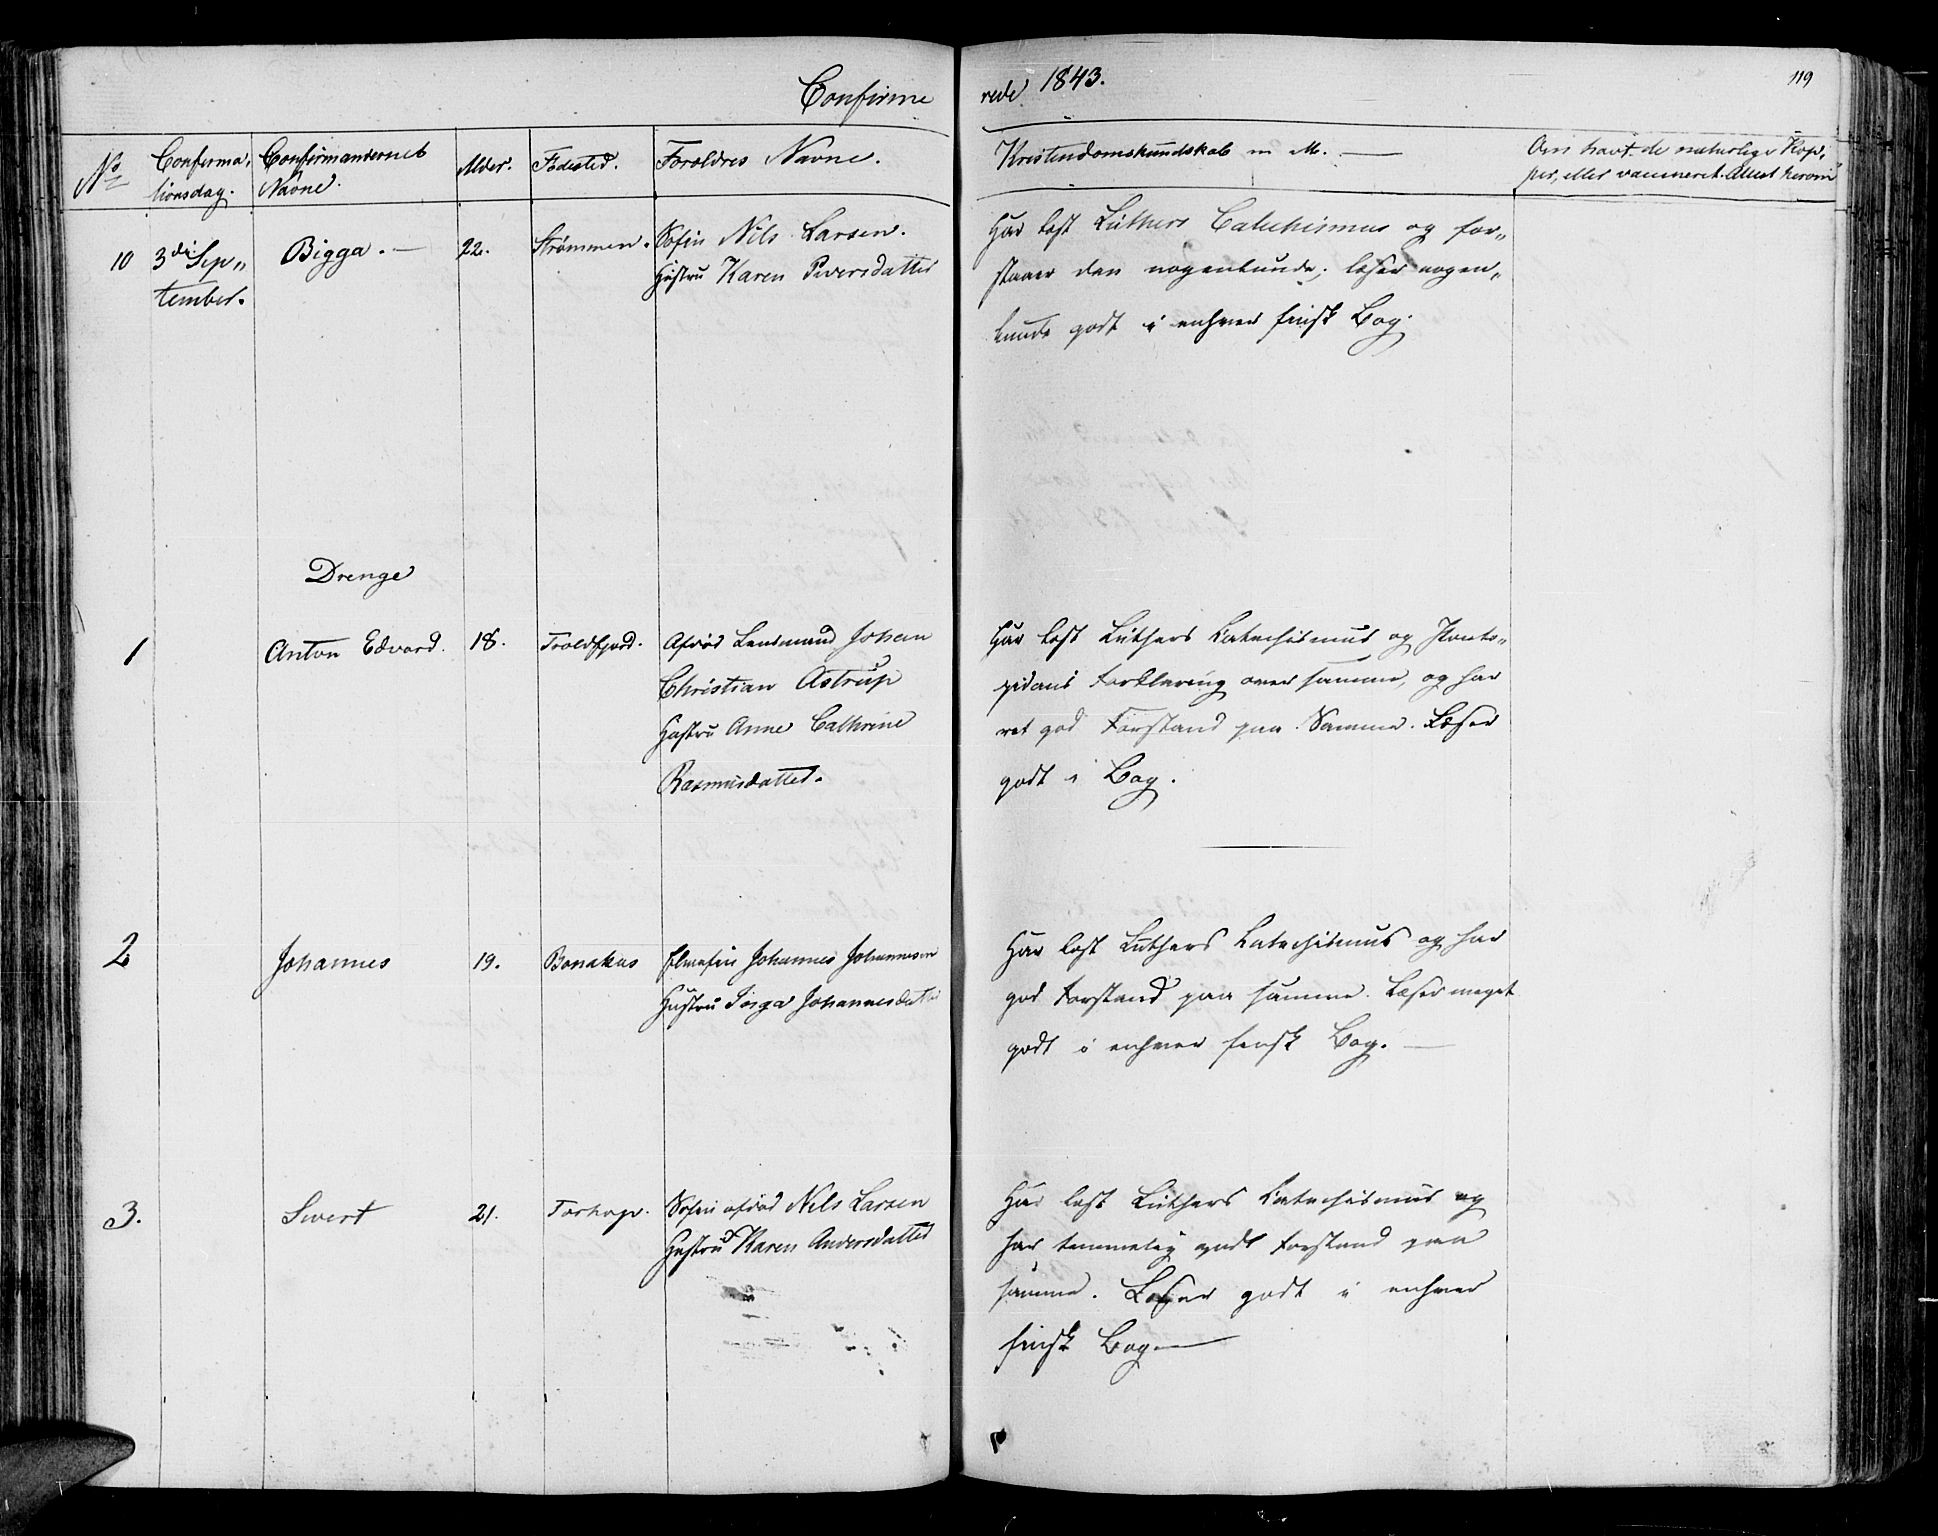 Confirme
rede 1843.
119
No
Confirma,
tionsdag.
Confirmandernes
Navne.
Alder.
Födested.
Forældres Navne.
Kristendomskundskab m. M.
Om havt de naturlige Kop,
per, eller vaccineret. Attest herom
10
3die Sep„
tember.
Bigga.
22.
Strømmen.
Søfin Nils Larsen.
Hustru Karen Peersdatter
Har læst Luthers Catechismus og for„
staaer den nogenlunde; læser nogen„
lunde godt i enhver finsk Bog.
Drenge
1
Anton Edvard.
18.
Troldfjord.
Afdöd Lensmand Johan
Christian Astrup
Hustru Anne Cathrine
Rasmusdatter.
Har læst Luthers Catechismus og Ponto„
pidans Forklaring over samme, og har
ret god Forstand paa Samme. Læser
godt i Bog.
2
Johannes
19.
Bonakas
Elvefin Johannes Johannesen
Hustru Inga Johannesdatter
Har læst Luthers Catechismus og har
god Forstand paa samme. Læser meget
godt i enhver finsk Bog.
3.
Sivert
21.
Torhop.
Søfin afdöd Nils Larsen
Hustru Karen Andersdatter
Har læst Luthers Catechismus og
har temmelig godt Forstand paa
samme. Læser godt i enhver
finsk Bog